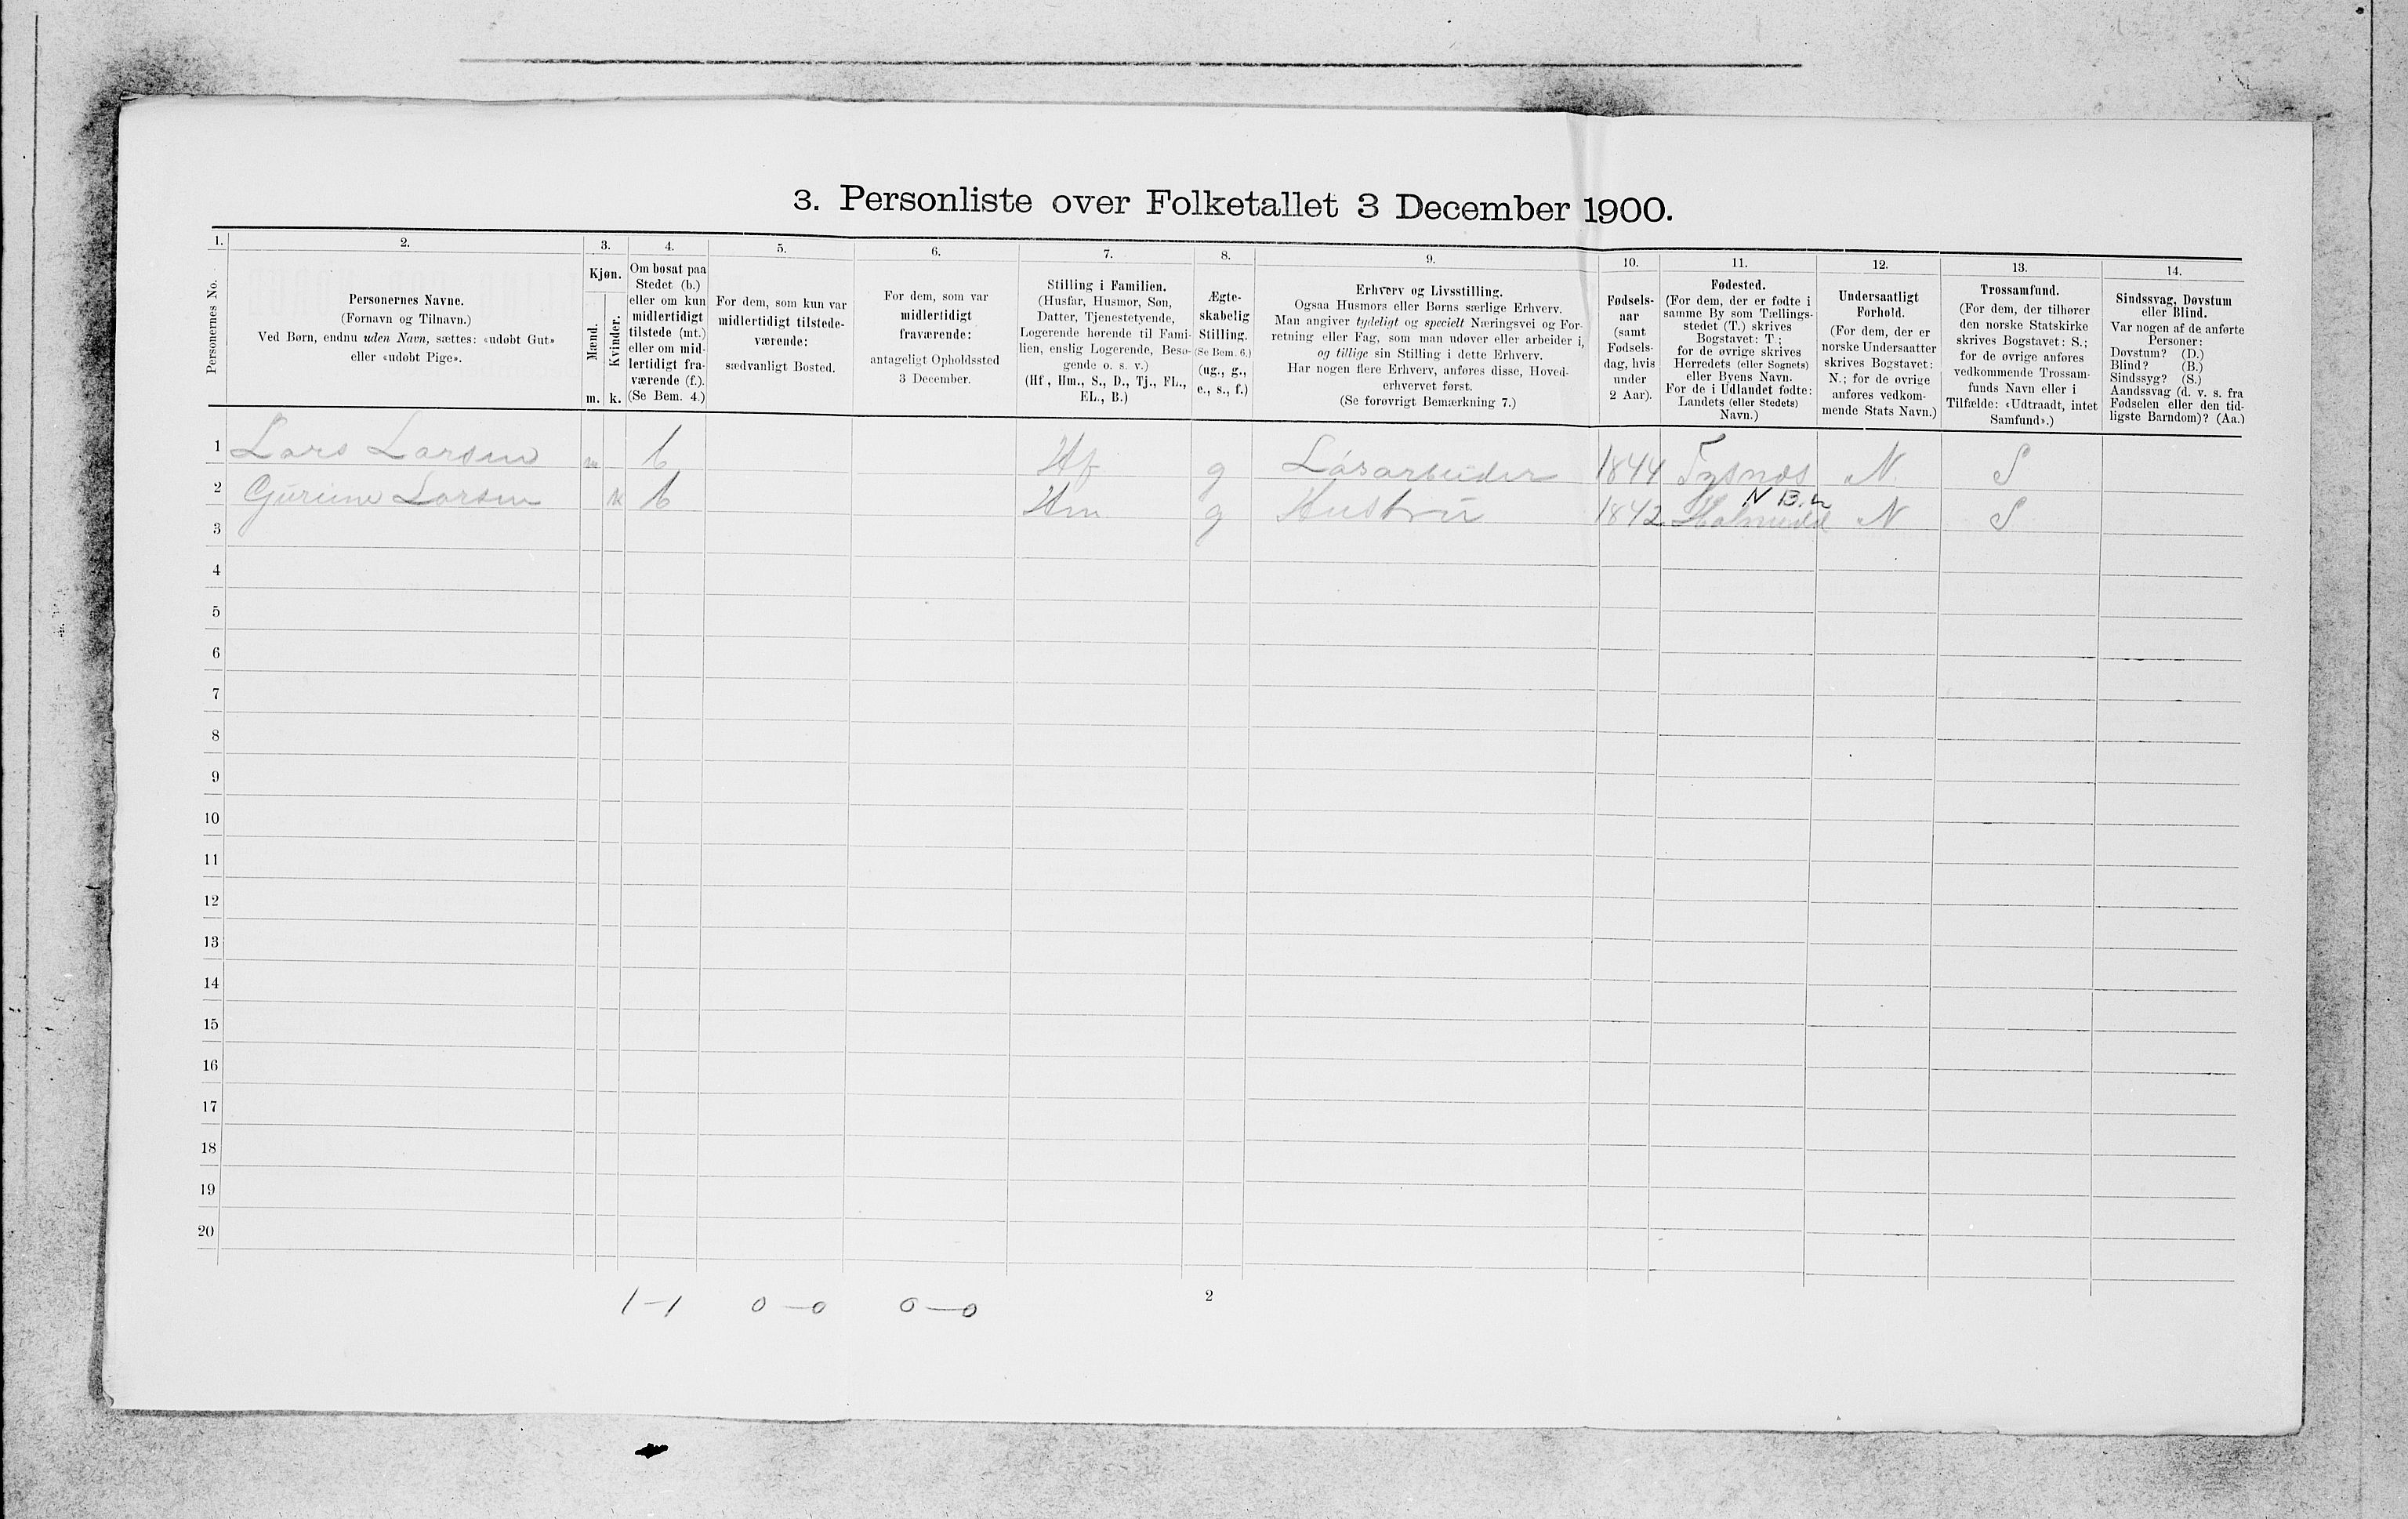 3. Personliste over Folketallet 3 December 1900.
1. 2. 3. 4. 5. 6. 7. 8. 9. 10. 11. 12. 13. 14.
Personernes No.
Personernes Navne.
(Fornavn og Tilnavn.)
Ved Børn, endnu uden Navn, sættes: «udøbt Gut»
eller «udøbt Pige».
Kjøn.
Mænd.
Kvinder.
m. k.
Om bosat paa
Stedet (b.)
eller om kun
midlertidigt
tilstede (mt.)
eller om mid-
lertidigt fra-
værende (f.).
(Se Bem. 4.)
For dem, som kun var
midlertidigt tilstede-
værende:
sædvanligt Bosted.
For dem, som var
midlertidigt
fraværende:
antageligt Opholdssted
3 December.
Stilling i Familien.
(Husfar, Husmor, Søn,
Datter, Tjenestetyende,
Logerende hørende til Fami-
lien, enslig Logerende, Besø-
gende o. s. v.)
(Hf., Hm., S., D., Tj., FL.,
EL., B.)
Ægte-
skabelig
Stilling.
(Se Bem. 6.)
(ug., g.,
e., s., f.)
Erhverv og Livsstilling.
Ogsaa Husmors eller Børns særlige Erhverv.
Man angiver tydeligt og specielt Næringsvei og For-
retning eller Fag, som man udøver eller arbeider i,
og tillige sin Stilling i dette Erhverv.
Har nogen flere Erhverv, anføres disse, Hoved-
erhvervet først.
(Se forøvrigt Bemærkning 7.)
Fødsels-
aar
(samt
Fødsels-
dag, hvis
under
2 Aar).
Fødested.
(For dem, der er fødte i
samme By som Tællings-
stedet (T.) skrives
Bogstavet: T.;
for de øvrige skrives
Herredets (eller Sognets)
eller Byens Navn.
For de i Udlandet fødte:
Landets (eller Stedets)
Navn.)
Undersaatligt
Forhold.
(For dem, der er
norske Undersaatter
skrives Bogstavet:
N.; for de øvrige
anføres vedkom-
mende Stats Navn.)
Trossamfund.
(For dem, der tilhører
den norske Statskirke
skrives Bogstavet: S.;
for de øvrige anføres
vedkommende Trossam-
funds Navn eller i
Tilfælde: «Udtraadt, intet
Samfund».)
Sindssvag, Døvstum
eller Blind.
Var nogen af de anførte
Personer:
Døvstum? (D.)
Blind? (B.)
Sindssyg? (S.)
Aandssvag (d. v. s. fra
Fødselen eller den tid-
ligste Barndom)? (Aa.)
1 Lars Larsen m b Hf g Løsarbeider 1844 Tysnæs N S
N B.h
2 Gurine Larsen k b Hm g Hustru 1842 N S
3
4
5
6
7
8
9
10
11
12
13
14
15
16
17
18
19
20
1–1 0–0 0–0
2